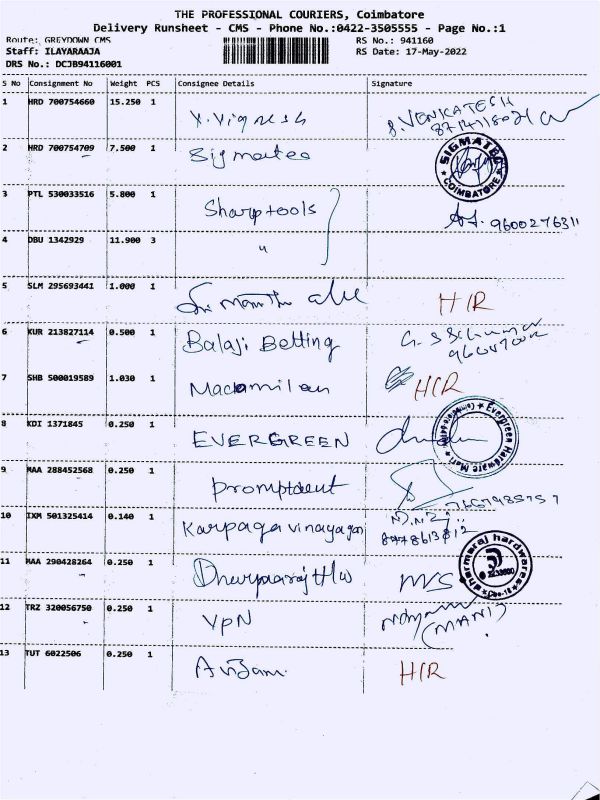 THE PROFESSIONAL COURIERS, Coimbatore
Delivery Runsheet - CMS - Phone No.:0422-3505555 - Page No.:1
Route: GREYDOWN CMS RS No.: 941160
Staff: ILAYARAAJA RS Date: 17-May-2022
DRS No.: DCJB94116001
S No Consignment No Weight PCS Consignee Details Signature
1 HRD 700754660 15.250 1 Y. Vignesh S. VENKATESH
2 HRD 700754709 7.500 1 Sigmatec SIGMATEC COIMBATORE
3 PTL 530033516 5.800 1 Sharptools 9600276311
4 DBU 1342929 11.900 3 "
5 SLM 295693441 1.000 1 H/R
6 KUR 213827114 0.500 1 Balaji Betting
7 SHB 500019589 1.030 1 H/R
8 KDI 1371845 0.250 1 EVERGREEN Evergreen Hardware Mart
9 MAA 288452568 0.250 1 Promptdent
10 IXM 501325414 0.140 1 Karpaga vinayagar
11 MAA 290428264 0.250 1 M/S dharmaraj hardwares
12 TRZ 320056750 0.250 1 VPN (MANI)
13 TUT 6022506 0.250 1 H/R